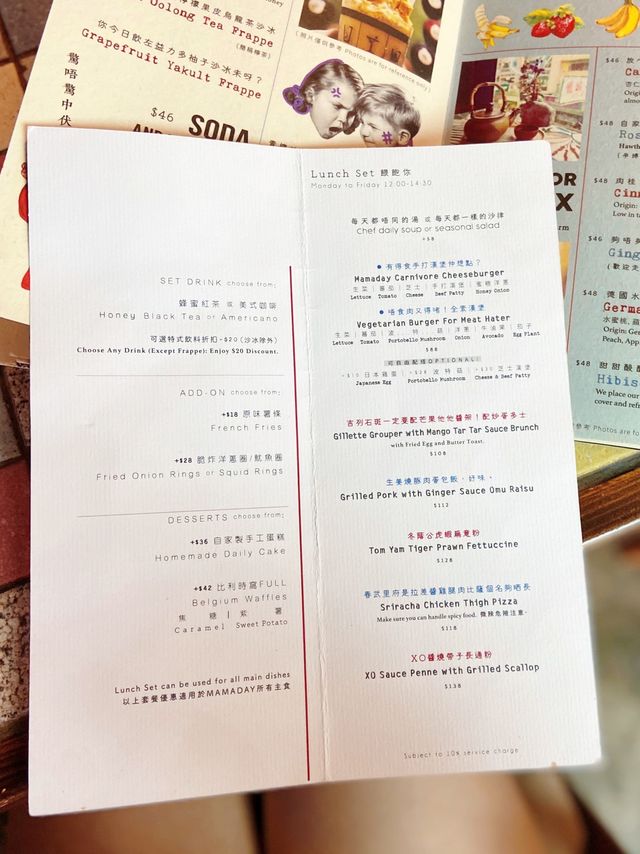 Oolong Tea Frappe
(簡稱檸茶)
你今日飲左益力多柚子沙冰未呀？
Grapefruit Yakult Frappe
驚唔驚中伏
$46
SODA
(照片僅供參考 Photos are for reference only)
$46
$48
Ros
Hawth
$48 肉桂
Cinn
Origin:
Low in ta
$46
Ging
$48 德國水
Germa
水蜜桃, 蘋
Origin: Ger
Peach, App
$48 甜甜酸酸
Hibis
We place our
cover and refr
Photos are for
Lunch Set 餵飽你
Monday to Friday 12:00-14:30
每天都唔同的湯 或 每天都一樣的沙律
Chef daily soup or seasonal salad
+$8
有得食手打漢堡仲想點？
Mamaday Carnivore Cheeseburger
生菜｜蕃茄｜芝士｜手打漢堡｜蜜糖洋蔥
Lettuce Tomato Cheese Beef Patty Honey Onion
唔食肉又得啫！全素漢堡
Vegetarian Burger For Meat Hater
生菜｜蕃茄｜波特菇｜洋蔥｜牛油果｜茄子
Lettuce Tomato Portobello Mushroom Onion Avocado Egg Plant
$88
可自由配搭OPTIONAL:
+$10 日本雞蛋｜+$28 波特菇｜+$30 芝士漢堡
Japanese Egg Portobello Mushroom Cheese & Beef Patty
吉列石斑一定要配芒果他他醬架！配炒蛋多士
Gillette Grouper with Mango Tar Tar Sauce Brunch
with Fried Egg and Butter Toast.
$108
生姜燒豚肉蛋包飯，好味。
Grilled Pork with Ginger Sauce Omu Raisu
$112
冬蔭公虎蝦扁意粉
Tom Yam Tiger Prawn Fettuccine
$128
春武里府是拉差醬雞腿肉比薩個名夠晒長
Sriracha Chicken Thigh Pizza
Make sure you can handle spicy food. 微辣危險注意。
$118
XO醬燒帶子長通粉
XO Sauce Penne with Grilled Scallop
$138
Subject to 10% service charge
SET DRINK choose from:
蜂蜜紅茶 或 美式咖啡
Honey Black Tea or Americano
可選特式飲料折扣-$20 (沙冰除外)
Choose Any Drink (Except Frappe): Enjoy $20 Discount.
ADD-ON choose from:
+$18 原味薯條
French Fries
+$28 脆炸洋蔥圈/魷魚圈
Fried Onion Rings or Squid Rings
DESSERTS choose from:
+$36 自家製手工蛋糕
Homemade Daily Cake
+$42 比利時窩FULL
Belgium Waffles
焦糖｜紫薯
Caramel Sweet Potato
Lunch Set can be used for all main dishes
以上套餐優惠適用於MAMADAY所有主食